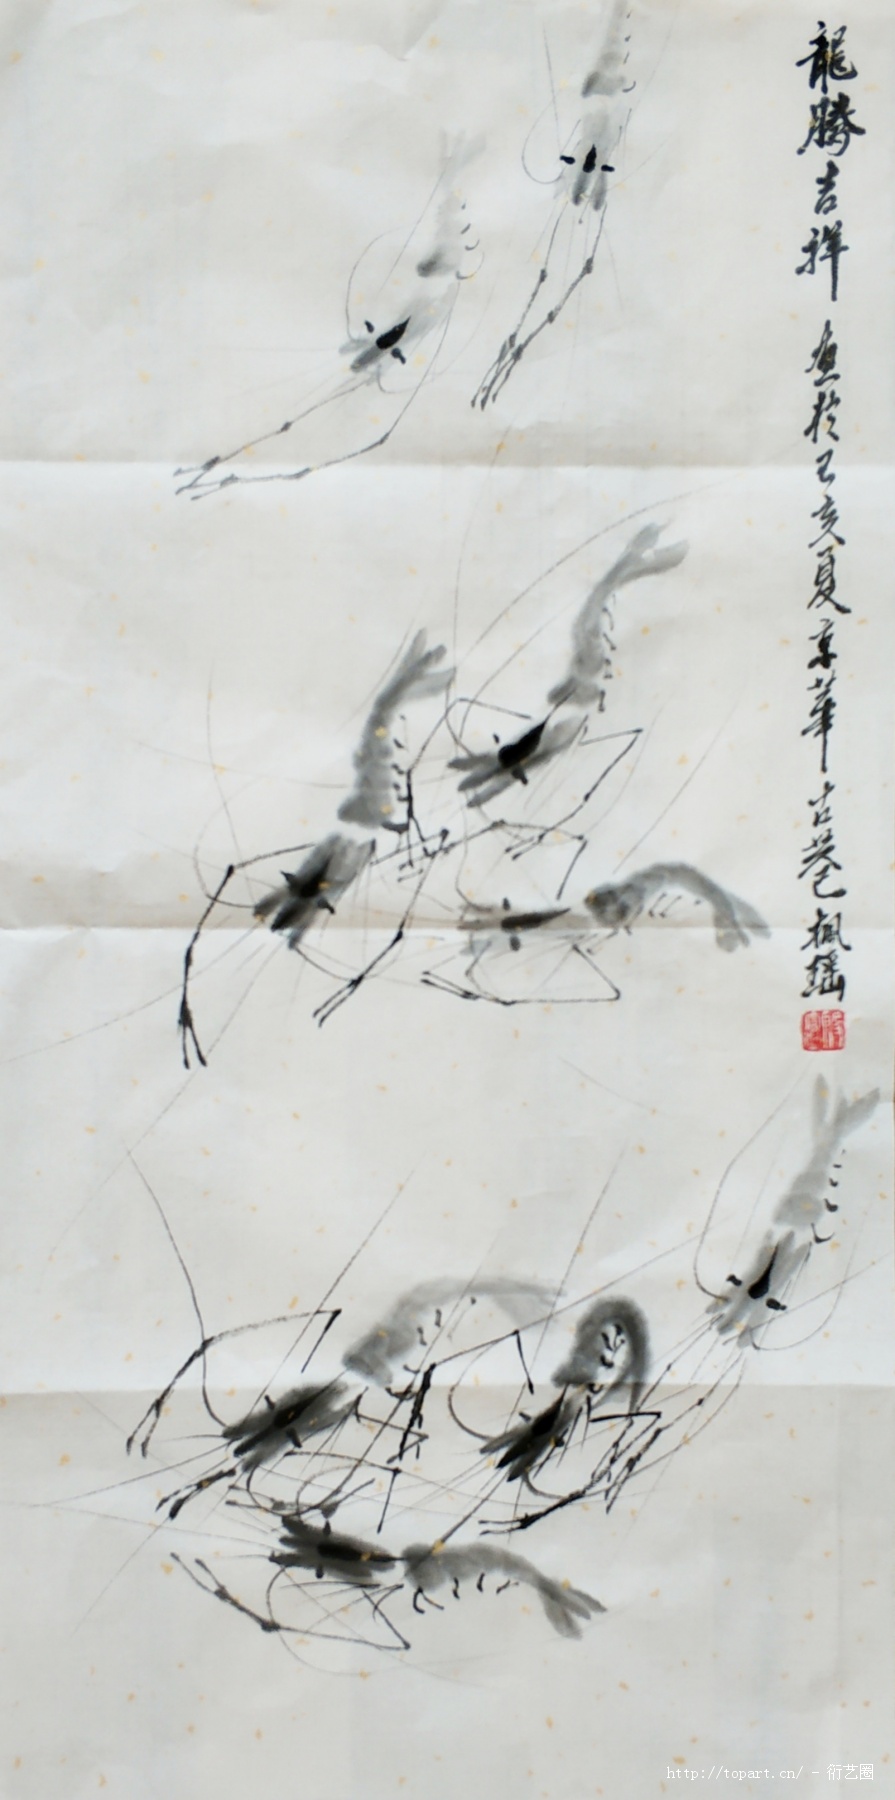 龍騰吉祥 畫於己亥夏京華古巷楓鷂
http://topart.cn/ - 衍艺圈